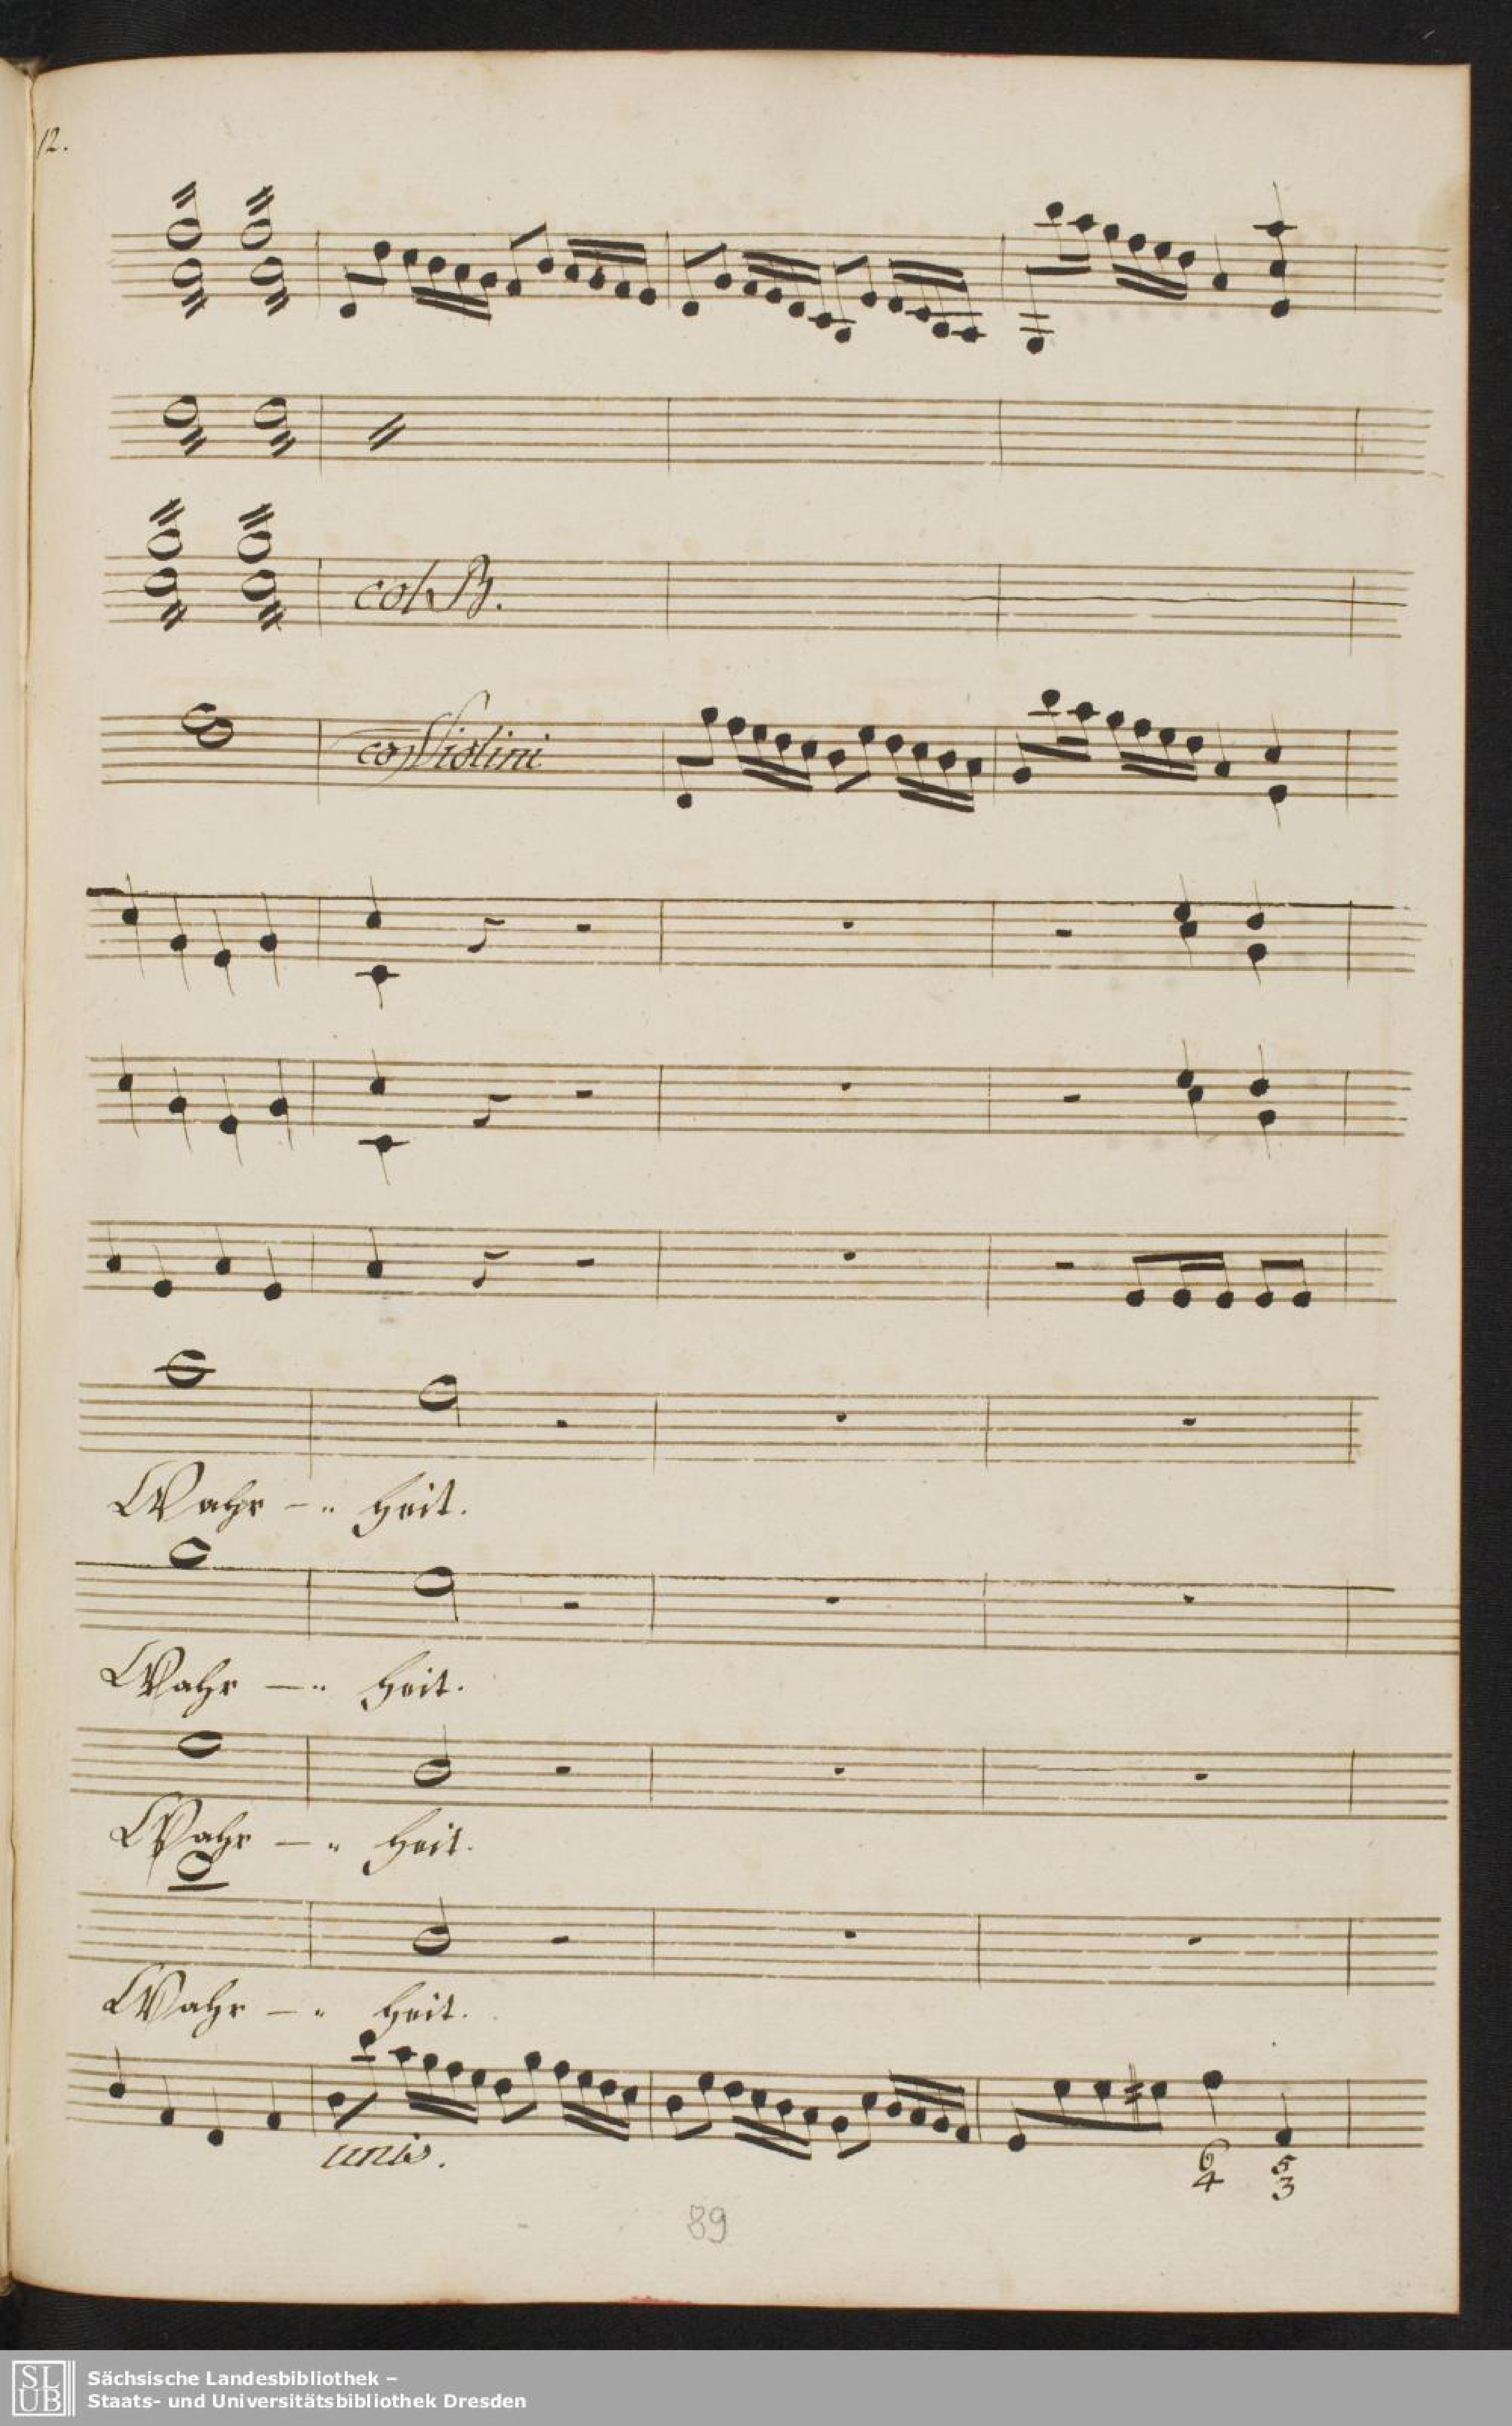 12.
col B.
con Violini
Wahr - heit.
Wahr - heit.
Wahr - heit.
Wahr - heit.
unis.
6 5
4 3
89
SLUB
Sächsische Landesbibliothek –
Staats- und Universitätsbibliothek Dresden